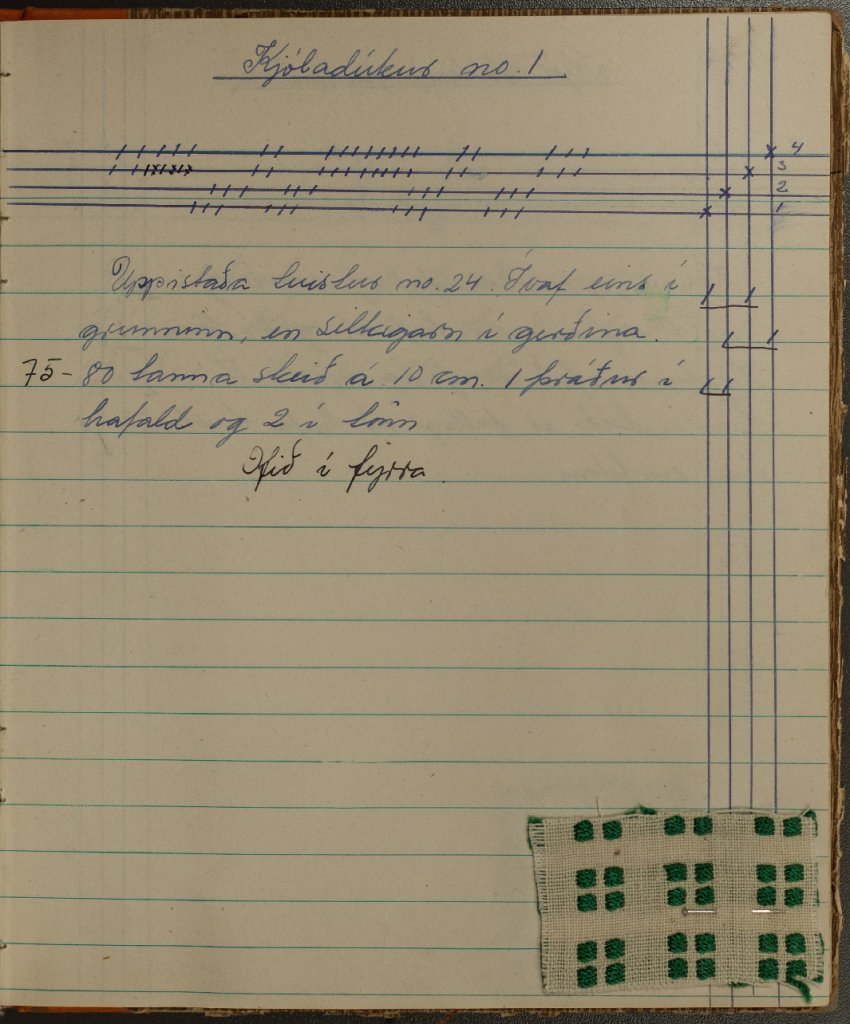 Kjóladúkur no. 1
4
3
2
1
Uppistaða tvistur no. 24. Ívaf eins í
grunninn, en silkigarn í gerðina.
75- 80 tanna skeið á 10 cm. 1 þráður í
hafald og 2 í tönn
Ofið í fyrra